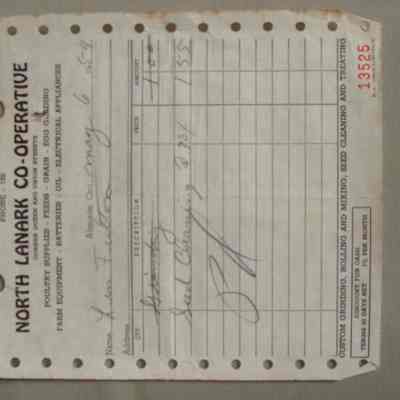 PHONE - 182
NORTH LANARK CO-OPERATIVE
CORNER QUEEN AND UNION STREETS
POULTRY SUPPLIES - FEEDS - GRAIN - EGG GRADING
FARM EQUIPMENT - BATTERIES - OIL - ELECTRICAL APPLIANCES
Almonte Ont. May 6 1954
Name
Address
QTY. DESCRIPTION PRICE AMOUNT
1.00
Seed Cleaning 1 55
CUSTOM GRINDING, ROLLING AND MIXING, SEED CLEANING AND TREATING
DISCOUNT FOR CASH
TERMS 30 DAYS NET 1% PER MONTH
13525